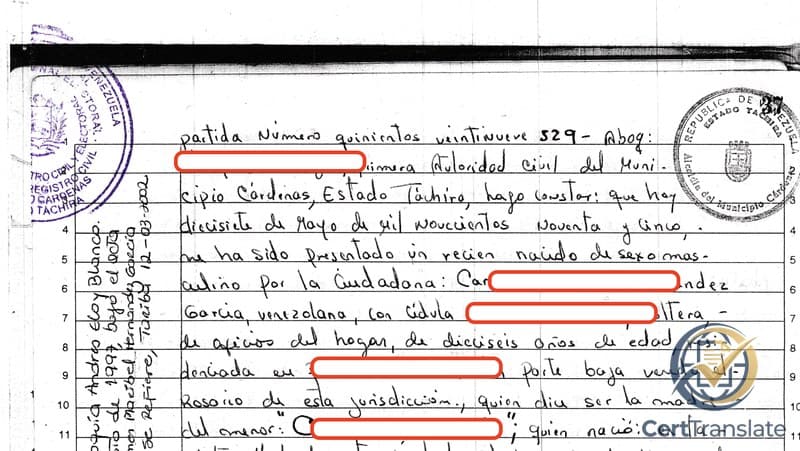 37
partida Número quinientos veintinueve 529 - Abog:
primera Autoridad Civil del Muni-
cipio Cárdenas, Estado Táchira, hago constar: que hoy
diecisiete de Mayo de mil Novecientos Noventa y Cinco,
me ha sido presentado un recien nacido de sexo mas-
culino por la Ciudadana: Car ández
García, venezolana, con Cédula oltera, -
de oficios del hogar, de dieciseis años de edad resi
denciada en parte baja vereda el-
Rosario de esta jurisdicción., quien dice ser la madre
del menor: "C "; quien nació: en la -
4
5
6
7
8
9
10
11
2
3
4
5
6
7
8
9
10
11
REPUBLICA DE VENEZUELA
ESTADO TACHIRA
del Municipio Cárdenas
VENEZUELA
ELECTORAL
REGISTRO CIVIL
CARDENAS
TACHIRA
Andres Eloy Blanco.
de 1997, bajo el acta
Maribel Hernandez García
Se Refiere, Táriba 12-03-2002
CertTranslate